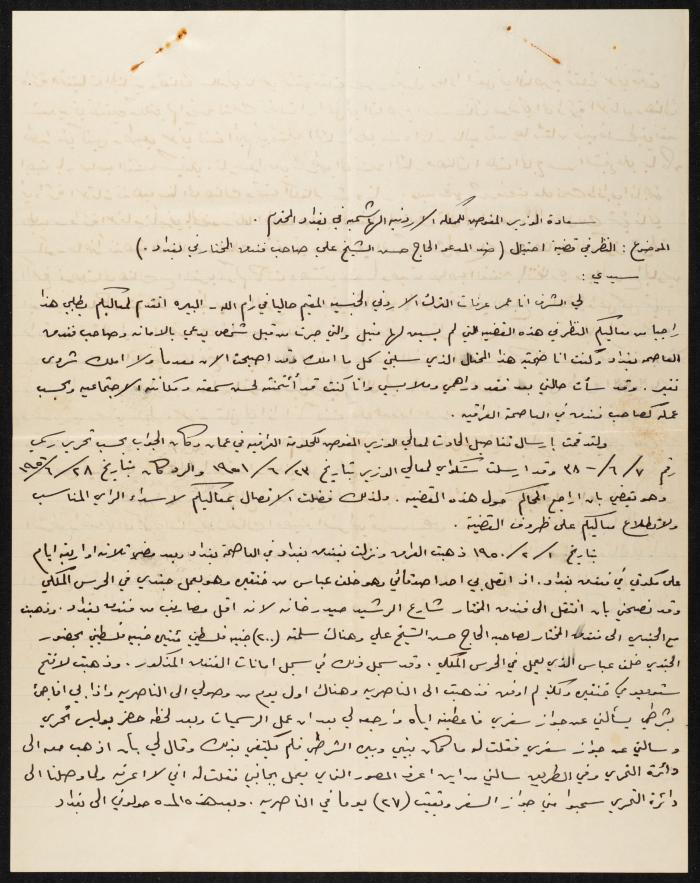 سعادة الوزير المفوض للمملكة الاردنية الهاشمية في بغداد المحترم .
الموضوع : النظر في قضية احتيال ( ضد المدعو الحاج حسن الشيخ علي صاحب فندق المختار في بغداد . )
سيدي :
لي الشرف انا عمر عرفات الترك الاردني الجنسية المقيم حاليا في رام الله - البيره اتقدم لمعاليكم بطلبي هذا
راجيا من معاليكم النظر في هذه القضية التي لم يسبق لها مثيل والتي جرت من قبل شخص يدعي بالامانه وصاحب فندق
العاصمه بغداد وكنت انا ضحية هذا المحتال الذي سلبني كل ما املك وقد اصبحت الان معدما ولا املك شروى
نقير . وقد سأت حالتي بعد فقد دراهمي وملابسي وانا كنت قد أئتمنته لحسن سمعته ومكانته الاجتماعيه وبحسب
عمله كصاحب فندق في العاصمة العراقيه .
ولقد قمت بإرسال تفاصيل الحادث لمعالي الوزير المفوض للحكومة العراقيه في عمان وكان الجواب بحسب تحرير رسمي
رقم ٧ /٦ /-٣٨ وقد ارسلت شكواي لمعالي الوزير بتاريخ ٢٣ /٦ /١٩٥١ والرد كان بتاريخ ٢٨ /٦ /١٩٥١
وهو يقضي بان اراجع المحاكم حول هذه القضيه . ولذلك فضلت الاتصال بمعاليكم لاسداء الراي المناسب
ولاطلاع معاليكم على ظروف القضية .
بتاريخ ١ /٢ /١٩٥٠ ذهبت العراق ونزلت بفندق بغداد في العاصمة بغداد وبعد مضي ثلاثه او اربعه ايام
على مكوثي في فندق بغداد . اذ اتصل بي احد اصدقائي وهو خلف عباس من وهو يعمل جندي في الحرس الملكي
وقد نصحني بان انتقل الى فندق المختار شارع الرشيد حيدر خانه لانه اقل مصاريف من فندق بغداد . وذهبت
مع الجندي الى فندق المختار لصاحبه الحاج حسن الشيخ علي وهناك سلمته (٢٠٠) جنيه فلسطيني مئتي جنيه فلسطيني بحضور
الجندي خلف عباس الذي يعمل في الحرس الملكي . وقد سجل ذلك في سجل امانات الفندق المذكور . وذهبت لافتح
ستوديو في ولكن لم اوفق فذهبت الى الناصريه وهناك اول يوم من وصولي الى الناصريه واذا بي افاجئ
بشرطي يسألني عن جواز سفري فاعطيته اياه وارجعه لي بعد ان عمل الرسميات وبعد لحظه حضر بوليس تحري
وسالني عن جواز سفري فقلت له ما كان بيني وبين الشرطي فلم يكتفي بذلك وقال لي بأن اذهب معه الى
دائرة التحري وفي الطريق سالني من اين اعرف المصور الذي يعمل بجانبي فقلت له اني لا اعرفه ولما وصلنا الى
دائرة التحري سحبوا مني جواز السفر وبقيت (٢٧) يوما في الناصريه . وبعد هذه المده حولوني الى بغداد